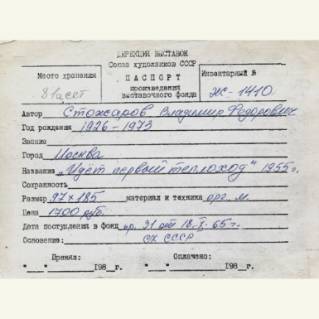 ДИРЕКЦИЯ ВЫСТАВОК
Союза художников СССР
Место хранения
ПАСПОРТ
произведений
выставочного фонда
Инвентарный №
ЖС-1410
Автор Стожаров Владимир Федорович
Год рождения 1926-1973
Звание
Город Москва
Название "Идёт первый теплоход" 1955 г.
Сохранность
Размер 97×185 материал и техника орг. м.
Цена 1700 руб.
Дата поступления в фонд пр. 31 от 18. 65 г.
Основание: СХ СССР
Принял: Оплачено:
"___"________198__г. "___"________198__г.